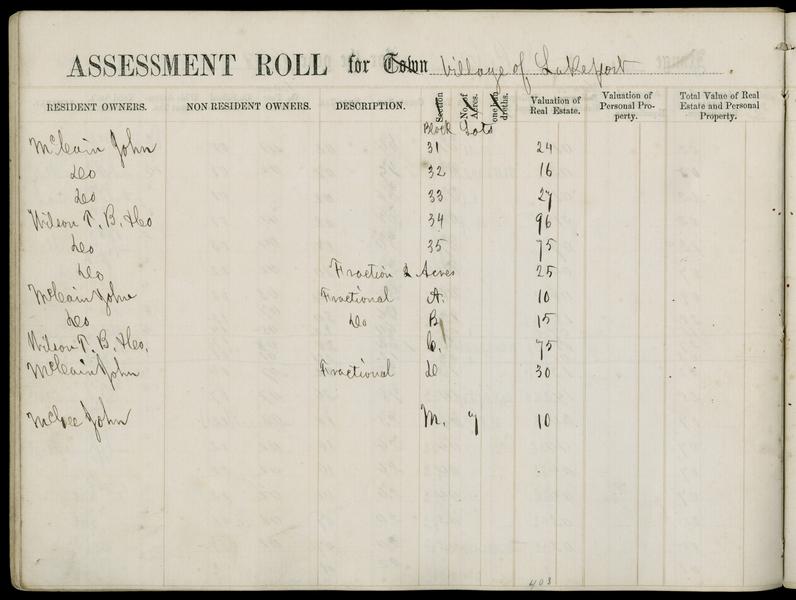 ASSESSMENT ROLL for Town Village of Lakeport
RESIDENT OWNERS. NON RESIDENT OWNERS. DESCRIPTION. Section No. of Acres. one hundreths. Valuation of Real Estate. Valuation of Personal Property. Total Value of Real Estate and Personal Property.
Block Lots
McCain John 31 24
Do 32 16
Do 33 27
Wilson T. B. &Co 34 96
Do 35 75
Do Fraction & Acres 25
McCain John Fractional A. 10
Do Do B 15
Wilson T. B. &Co. C. 75
McCain John Fractional D 30
McGee John M. 7 10
403